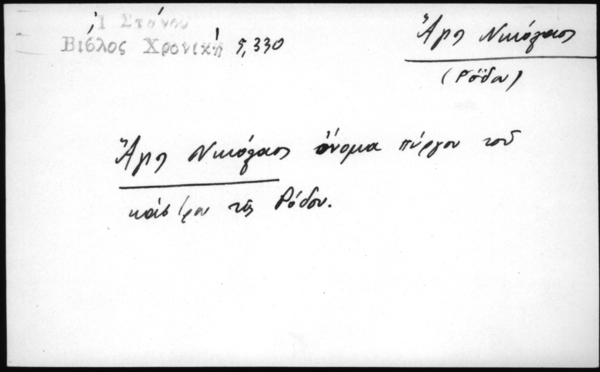 Ἰ Στάνου
Βίβλος Χρονική 5,330
Ἅγιος Νικόλαος
(Ρόδου)
Ἅγιος Νικόλαος ὄνομα πύργου τοῦ
κάστρου τῆς Ρόδου.